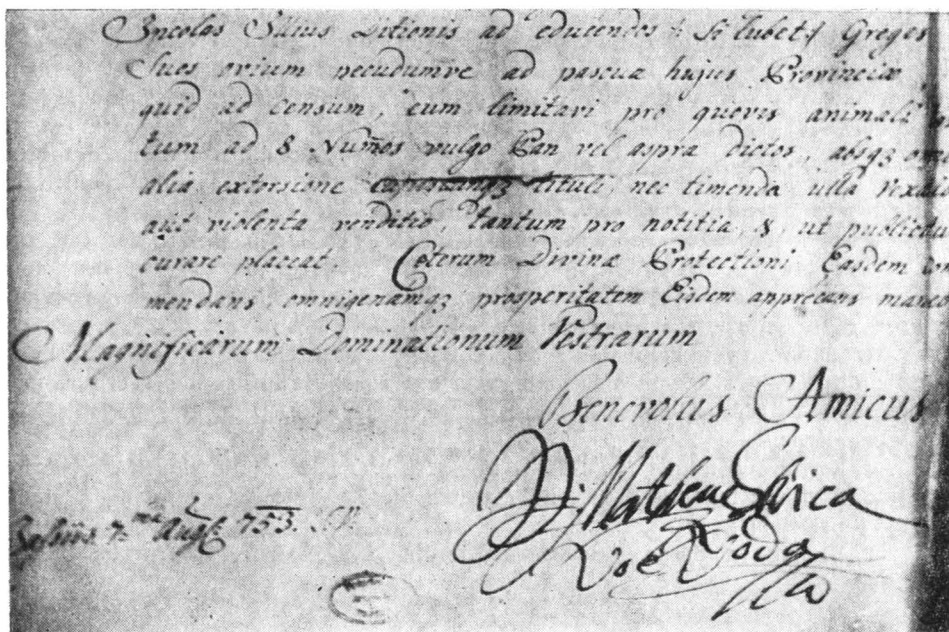 Incolas Illius Ditionis ad educendos /: Si lubet :/ Greges
Sues ovium pecudumve ad pascua hujus Provinciæ
quid ad censum, cum limitari pro quovis animali
tum ad 8 Num̃os vulgo Ban vel aspra dictos, absqz
alia extorsione cujuscunqz tituli, nec timenda ulla
aut violenta venditio, tantum pro notitia, &, ut
curare placeat. Cæterum Divinæ Protectioni Easdem
mendans, omnigenamqz prosperitatem Eisdem apprecans
Magnificarum Dominationum Vestrarum
Benevolus Amicus
Matheu Ghica
Voë Voda
Jassiis 7ma Augti 753.